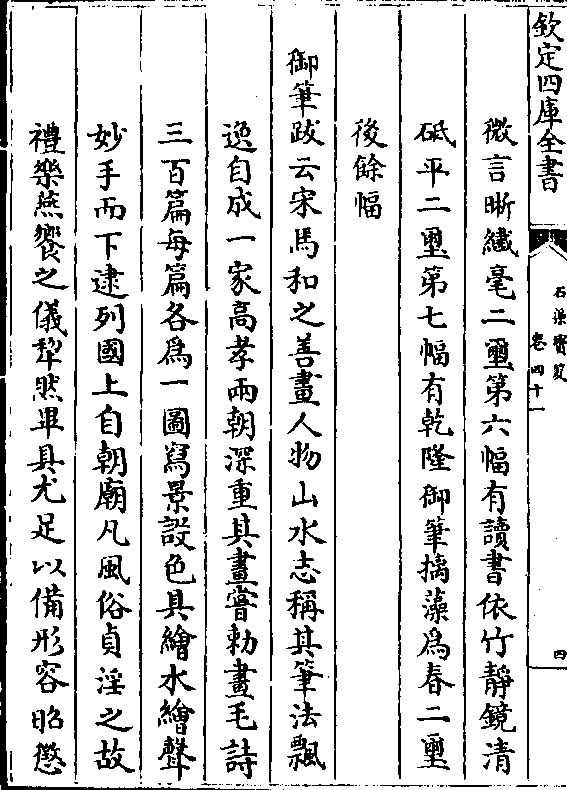 欽定四庫全書
石渠寶笈
卷四十一
四
微言晰纎毫二璽第六幅有讀書依竹靜鏡清
砥平二璽第七幅有乾隆御筆摛藻爲春二璽
後餘幅
御筆跋云宋馬和之善畫人物山水志稱其筆法飄
逸自成一家高孝兩朝深重其畫嘗勅畫毛詩
三百篇每篇各爲一圖寫景設色具繪水繪聲
妙手而下逮列國上自朝廟凡風俗貞淫之故
禮樂燕饗之儀犂然畢具尤足以備形容昭懲